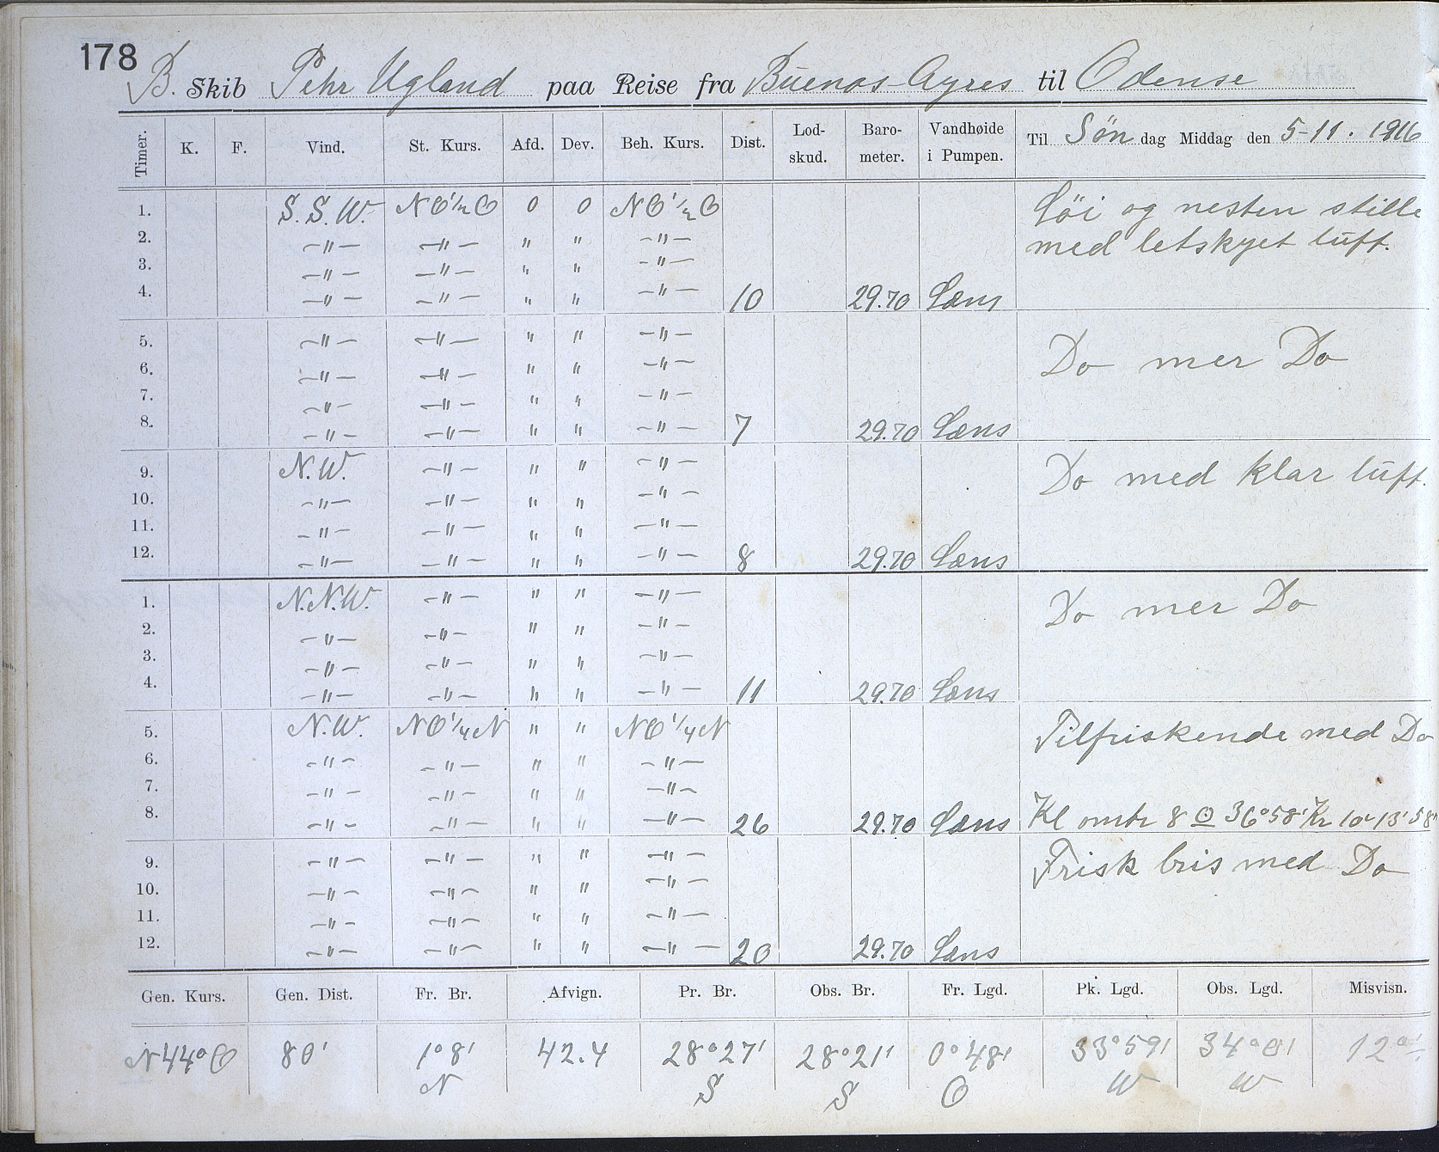 178
B. Skib Pehr Ugland paa Reise fra Buenos-Ayres til Odense
Timer. K. F. Vind. St. Kurs. Afd. Dev. Beh. Kurs. Dist. Lod-skud. Baro-meter. Vandhøide i Pumpen. Til Søndag Middag den 5-11. 1916
1. S.S.W. NO 1/2 O 0 0 NO 1/2 O Løi og nesten stille
2. -"- -"- " " -"- med letskyet luft.
3. -"- -"- " " -"-
4. -"- -"- " " -"- 10 29.70 Læns
5. -"- -"- " " -"- Do mer Do
6. -"- -"- " " -"-
7. -"- -"- " " -"-
8. -"- -"- " " -"- 7 29.70 Læns
9. N.W. -"- " " -"- Do med klar luft.
10. -"- -"- " " -"-
11. -"- -"- " " -"-
12. -"- -"- " " -"- 8 29.70 Læns
1. N.N.W. -"- " " -"- Do mer Do
2. -"- -"- " " -"-
3. -"- -"- " " -"-
4. -"- -"- " " -"- 11 29.70 Læns
5. N.W. NO 1/4 N " " NO 1/4 N Tilfriskende med Do
6. -"- -"- " " -"-
7. -"- -"- " " -"-
8. -"- -"- " " -"- 26 29.70 Læns Kl ombr 8 ⊙ 36°58' Kr 10 13' 58"
9. -"- -"- " " -"- Frisk bris med Do
10. -"- -"- " " -"-
11. -"- -"- " " -"-
12. -"- -"- " " -"- 20 29.70 Læns
Gen. Kurs. Gen. Dist. Fr. Br. Afvign. Pr. Br. Obs. Br. Fr. Lgd. Pk. Lgd. Obs. Lgd. Misvisn.
N44°O 80' 1°8' N 42.4 28°27' S 28°21' S 0°48' O 33°59' W 34°01' W 12°